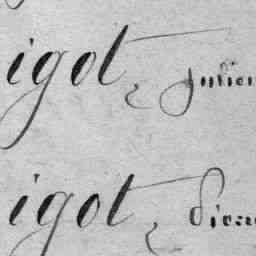 igot, Julien
igot, Pier